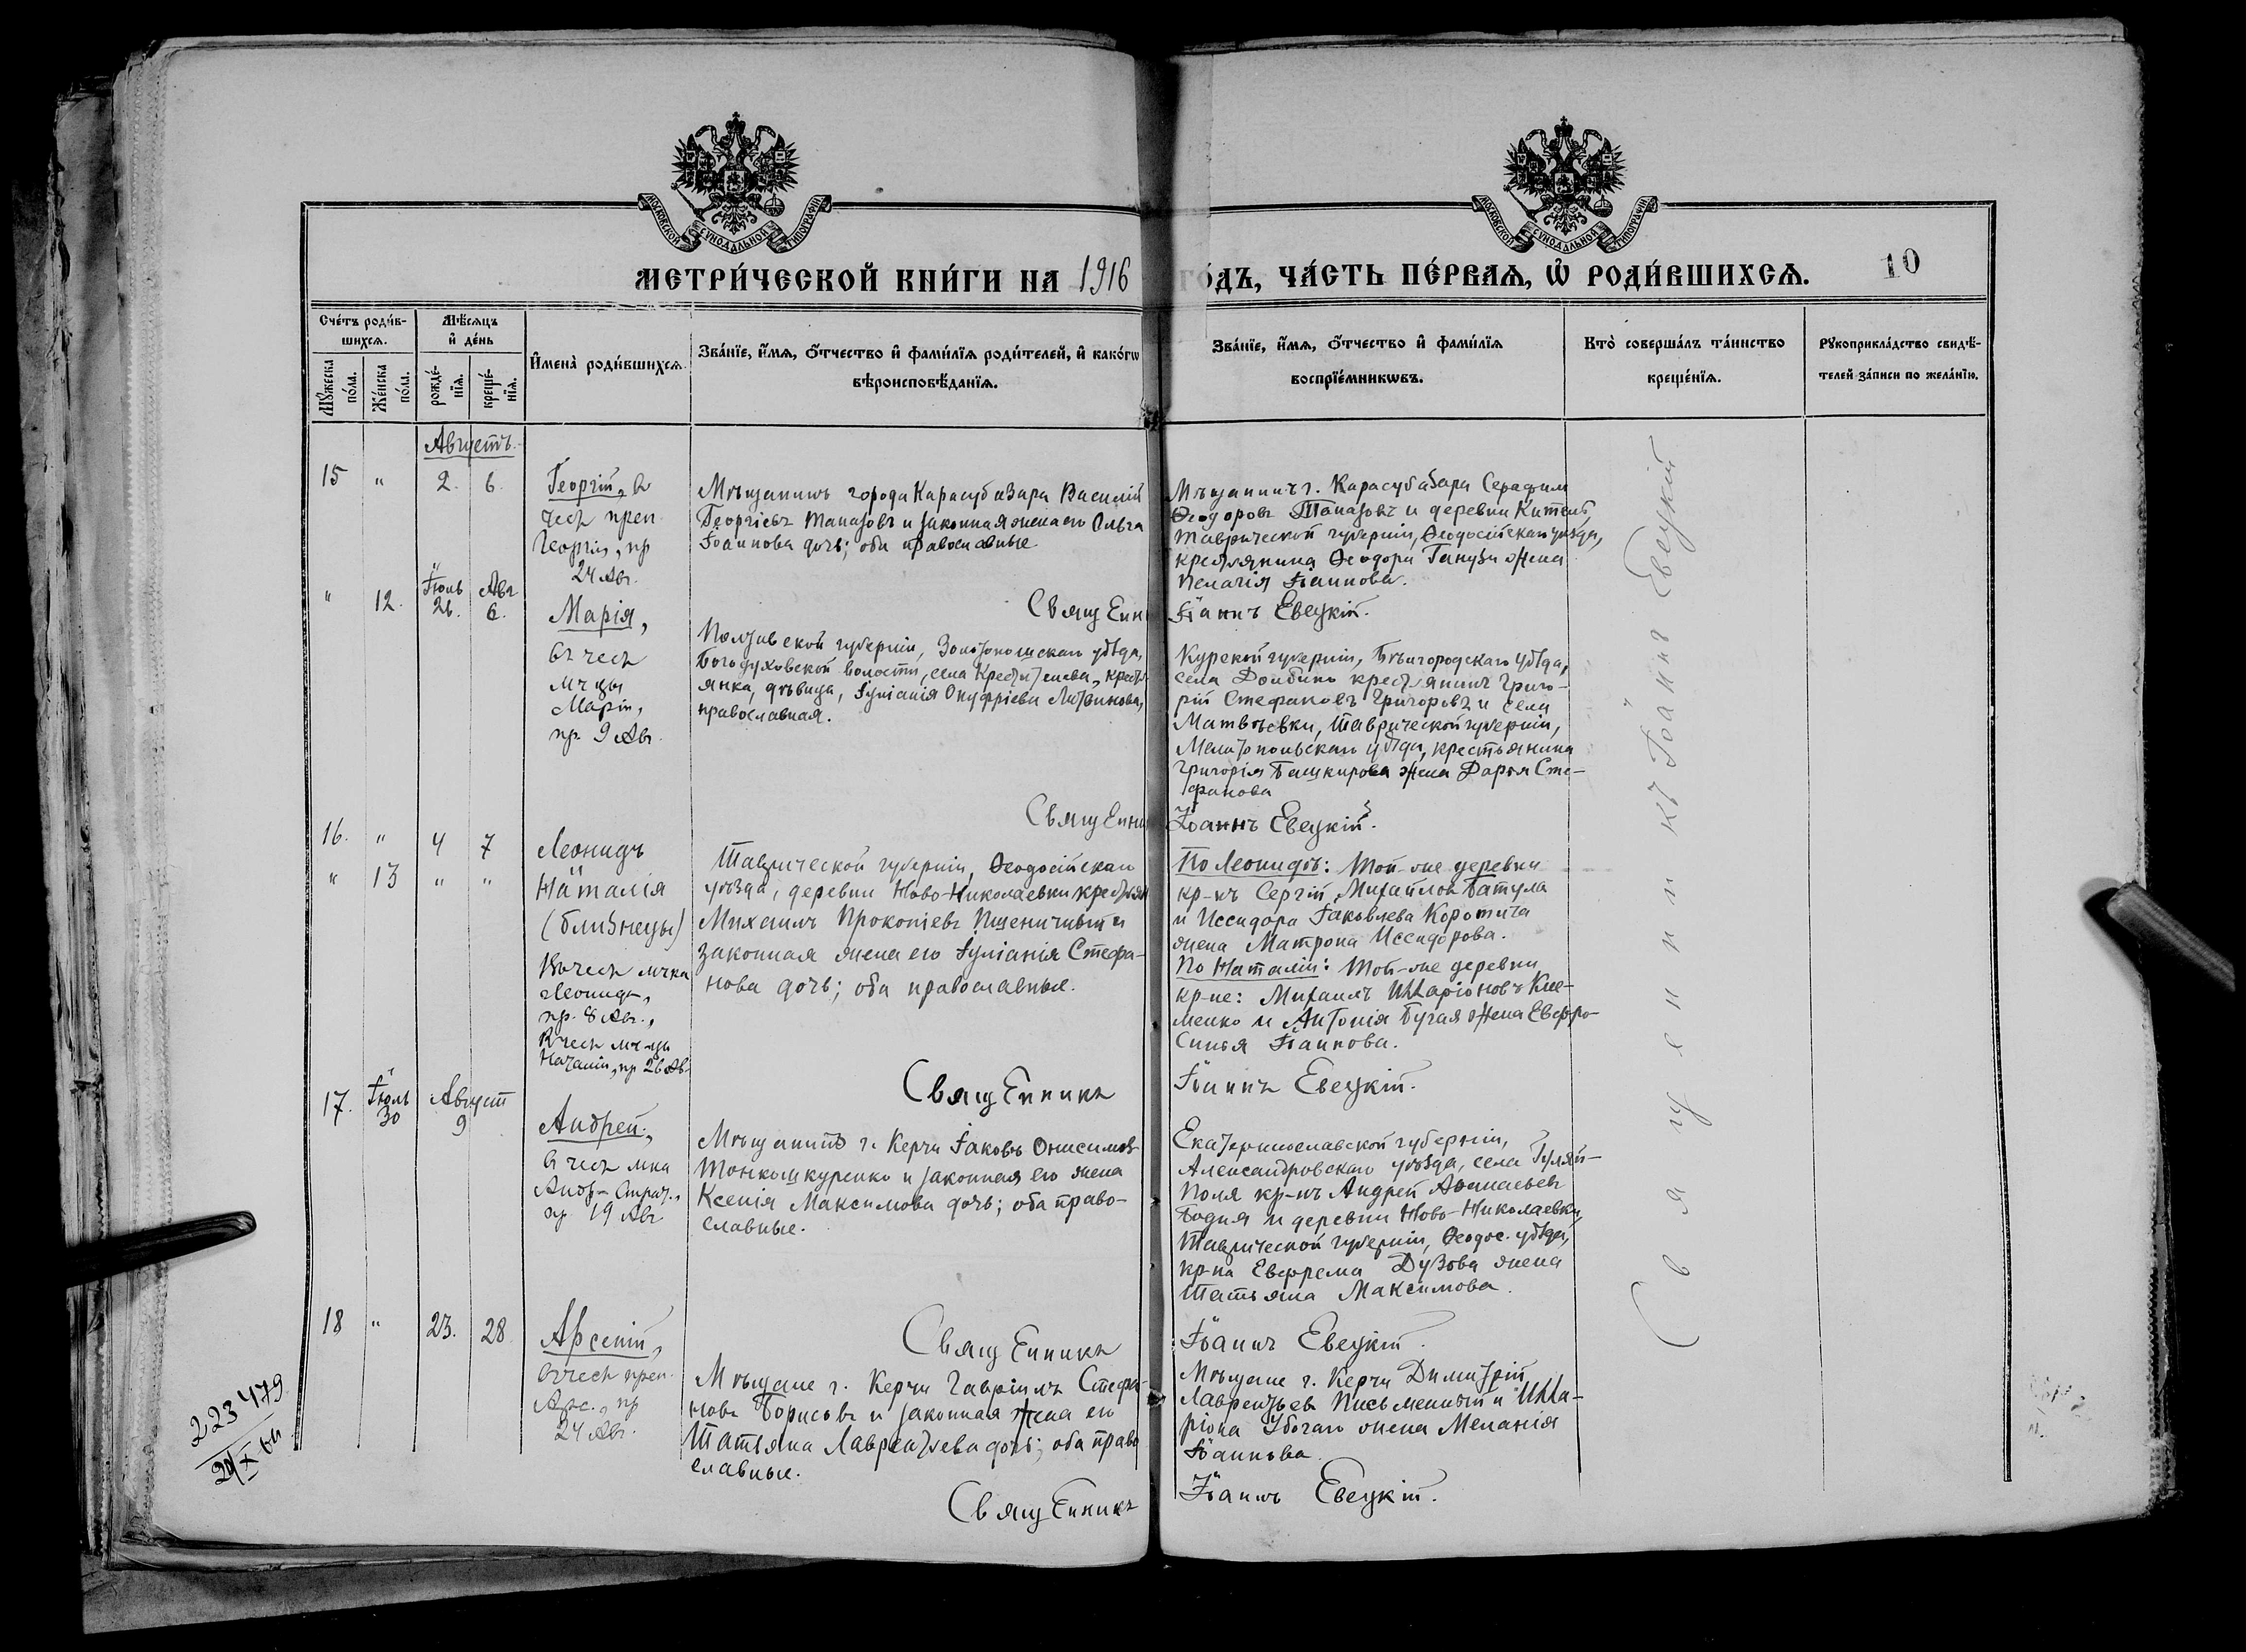 МОСКОВСКОЙ СѴНОДАЛЬНОЙ ТИПОГРАФІИ
МОСКОВСКОЙ СѴНОДАЛЬНОЙ ТИПОГРАФІИ
МЕТРИ́ЧЕСКОЙ КНИ́ГИ НА 1916
ГО́ДЪ, ЧА́СТЬ ПЕ́РВАѦ, Ѡ҆ РОДИ́ВШИХСѦ.
10
Сче́тъ роди́в-
шихсѧ.
Мѣ́сѧцъ
и҆ де́нь
Мꙋ́жеска
по́ла.
Же́нска
по́ла.
рожде́-
нїѧ.
креще́-
нїѧ.
И҆мена̀ роди́вшихсѧ.
Зва́нїе, и҆́мѧ, ѻ҆́тчество и҆ фами́лїѧ роди́телей, и҆ како́гѡ
вѣроисповѣ́данїѧ.
Зва́нїе, и҆́мѧ, ѻ҆́тчество и҆ фами́лїѧ
воспрїе́мникѡвъ.
Кто̀ соверша́лъ та́инство
креще́нїѧ.
Рꙋкоприкла́дство свидѣ́-
телей за́писи по жела́нїю.
Августъ.
15 " 2. 6.
Георгій, въ
честь преп.
Георгія, пр
24 Авг.
Мѣщанинъ города Карасубазара Василій
Георгіевъ Танасовъ и законная жена его Ольга
Іоаннова дочь; оба православные
Мѣщанинъ г. Карасубазара Серафим
Ѳеодоровъ Танасовъ и деревни Китень
Таврической губерніи, Ѳеодосійскаго уѣзда,
крестьянина Ѳеодора Ганузи жена
Пелагія Іоаннова.
Священн
Іоаннъ Евецкій.
" 12. Іюль 26. Авг 6.
Марія,
въ честь
мч-цы
Маріи,
пр. 9 Авг.
Полтавской губерніи, Золотоношскаго уѣзда,
Богодуховской волости, села Крестителева, кресть
янка, дѣвица, Іуліанія Онуфріева Литвинова,
православная.
Курской губерніи, Бѣлгородскаго уѣзда,
села Долбино крестьянинъ Григо-
рій Стефановъ Григоровъ и села
Матвѣевки, Таврической губерніи,
Мелитопольскаго уѣзда, крестьянина
Григорія Башкирова жена Дарья Сте-
фанова
Священни
Іоаннъ Евецкій.
16. " 4 7
Леонидъ
" 13 " "
Наталія
(близнецы)
Въ честь мчка
Леонида,
пр. 8 Авг.,
Въ честь мч-цы
Наталіи, пр 26 Авг
Таврической губерніи, Ѳеодосійскаго
уѣзда, деревни Ново-Николаевки крестьян
Михаилъ Прокопіевъ Пшеничный и
законная жена его Іуліанія Стефа-
нова дочь; оба православные.
По Леонидѣ: Той-же деревни
кр-нъ Сергій Михайловъ Батула
и Исидора Іаковлева Коротича
жена Матрона Исидорова.
По Наталіи: Той-же деревни
кр-не: Михаилъ Илларіоновъ Кле-
менко и Антонія Бугая жена Евфро-
синья Іоаннова.
Священникъ
Іоаннъ Евецкій.
17. Іюль 30 Август 9
Андрей,
въ честь мка
Андр. Страт.,
пр. 19 Авг
Мѣщанинъ г. Керчи Іаковъ Онисимовъ
Тонкошкуренко и законная его жена
Ксенія Максимова дочь; оба право-
славные.
Екатеринославской губерніи,
Александровскаго уѣзда, села Гуляй-
Поля кр-нъ Андрей Аѳанасьевъ
Бодня и деревни Ново-Николаевки,
Таврической губерніи, Ѳеодос. уѣзда,
кр-на Евфрема Дузова жена
Татьяна Максимова.
Священникъ
Іоаннъ Евецкій.
18 " 23. 28
Арсеній,
въ честь преп.
Арс., пр
24 Авг.
Мѣщане г. Керчи Гавріилъ Стефа-
новъ Борисовъ и законная жена его
Татьяна Лаврентьева дочь; оба право
славные.
Мѣщане г. Керчи Димитрій
Лаврентьевъ Письменный и Илла-
ріона Убогаго жена Меланія
Іоаннова.
Священникъ
Іоаннъ Евецкій.
Священникъ Іоаннъ Евецкій
223479